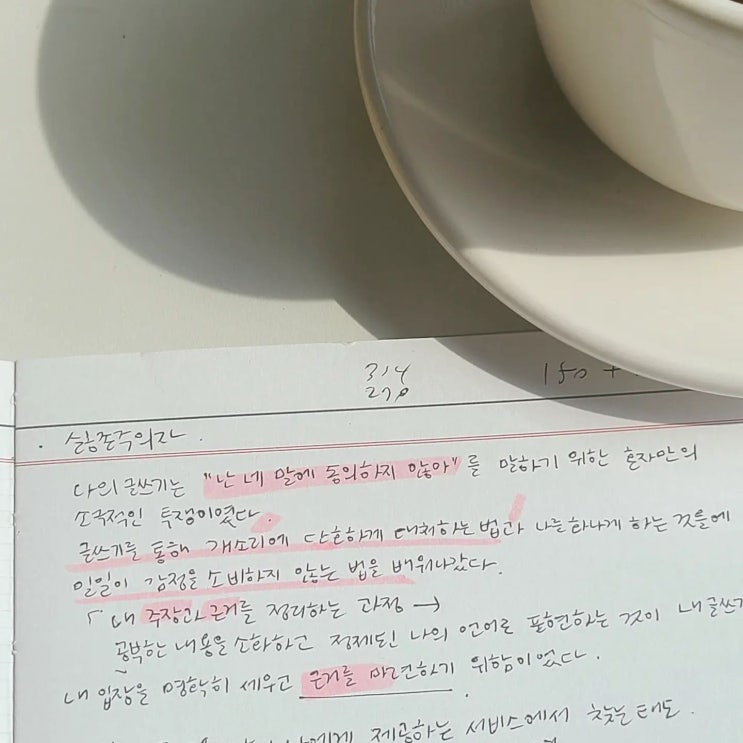 314
270
· 실존주의자.
나의 글쓰기는 "난 네 말에 동의하지 않아"를 말하기 위한 혼자만의
소극적인 투쟁이였다.
글쓰기를 통해 개소리에 단호하게 대처하는 법과 나를 화나게 하는 것들에
일일이 감정을 소비하지 않는 법을 배워나갔다.
「내 주장과 근거를 정리하는 과정 →
공부하는 내용을 소화하고 정제된 나의 언어로 표현하는 것이 내 글쓰기
내 입장을 명확히 세우고 근거를 마련하기 위함이었다.
제공하는 서비스에서 찾는 태도.